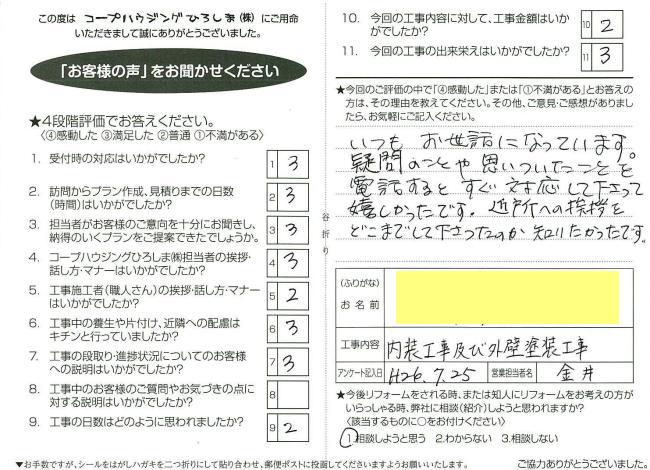 この度は コープハウジングひろしま(株) にご用命
いただきまして誠にありがとうございました。
「お客様の声」をお聞かせください
★4段階評価でお答えください。
〈④感動した ③満足した ②普通 ①不満がある〉
1. 受付時の対応はいかがでしたか? 1 3
2. 訪問からプラン作成、見積りまでの日数
(時間)はいかがでしたか? 2 3
3. 担当者がお客様のご意向を十分にお聞きし、
納得のいくプランをご提案できたでしょうか。 3 3
4. コープハウジングひろしま㈱担当者の挨拶・
話し方・マナーはいかがでしたか? 4 3
5. 工事施工者(職人さん)の挨拶・話し方・マナー
はいかがでしたか? 5 2
6. 工事中の養生や片付け、近隣への配慮は
キチンと行っていましたか? 6 3
7. 工事の段取り・進捗状況についてのお客様
への説明はいかがでしたか? 7 3
8. 工事中のお客様のご質問やお気づきの点に
対する説明はいかがでしたか? 8
9. 工事の日数はどのように思われましたか? 9 2
谷折り
10. 今回の工事内容に対して、工事金額はいか
がでしたか? 10 2
11. 今回の工事の出来栄えはいかがでしたか? 11 3
★今回のご評価の中で「④感動した」または「①不満がある」とお答え
の方は、その理由を教えてください。その他、ご意見・ご感想がありまし
たら、お気軽にご記入ください。
いつも お世話になっています。
疑問のことや思いついたことを
電話すると すぐ対応して下さって
嬉しかったです。近所への挨拶を
どこまでして下さったのか 知りたかったです。
(ふりがな)
お名前
工事内容 内装工事及び外壁塗装工事
アンケート記入日 H26.7.25 営業担当者名 金井
★今後リフォームをされる時、または知人にリフォームをお考えの方が
いらっしゃる時、弊社に相談(紹介)しようと思われますか?
〈該当するものに○をお付けください〉
1.相談しようと思う 2.わからない 3.相談しない
▼お手数ですが、シールをはがしハガキを二つ折りにして貼り合わせ、郵便ポストに投函してくださいますようお願いいたします。 ご協力ありがとうございました。